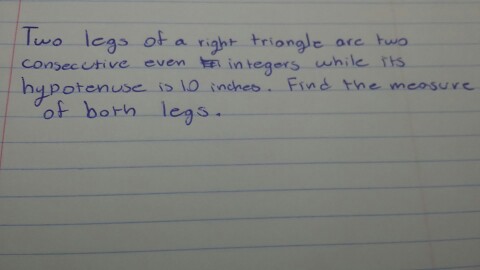 Two legs of a right triangle are two
consecutive even integers while its
hypotenuse is 10 inches. Find the measure
of both legs.